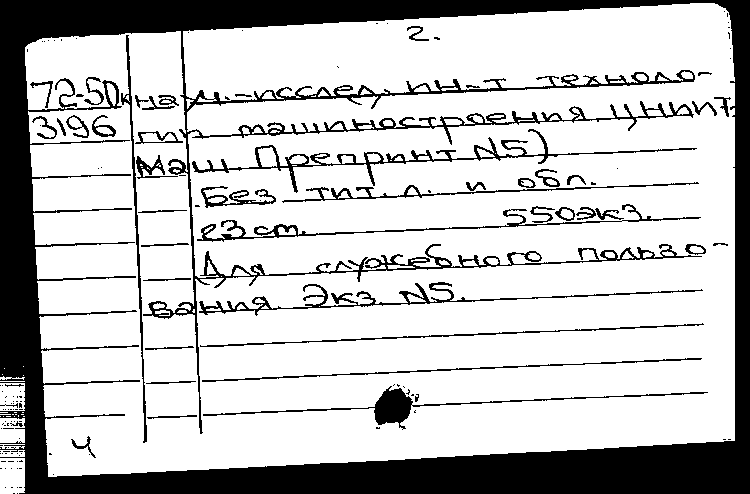 2.
72-50к науч.-исслед. ин-т техноло-
3196 гии машиностроения ЦНИИТ-
маш. Препринт N5)
Без тит. л. и обл.
23 ст. 550экз.
Для служебного пользо-
вания Экз. N5.
4